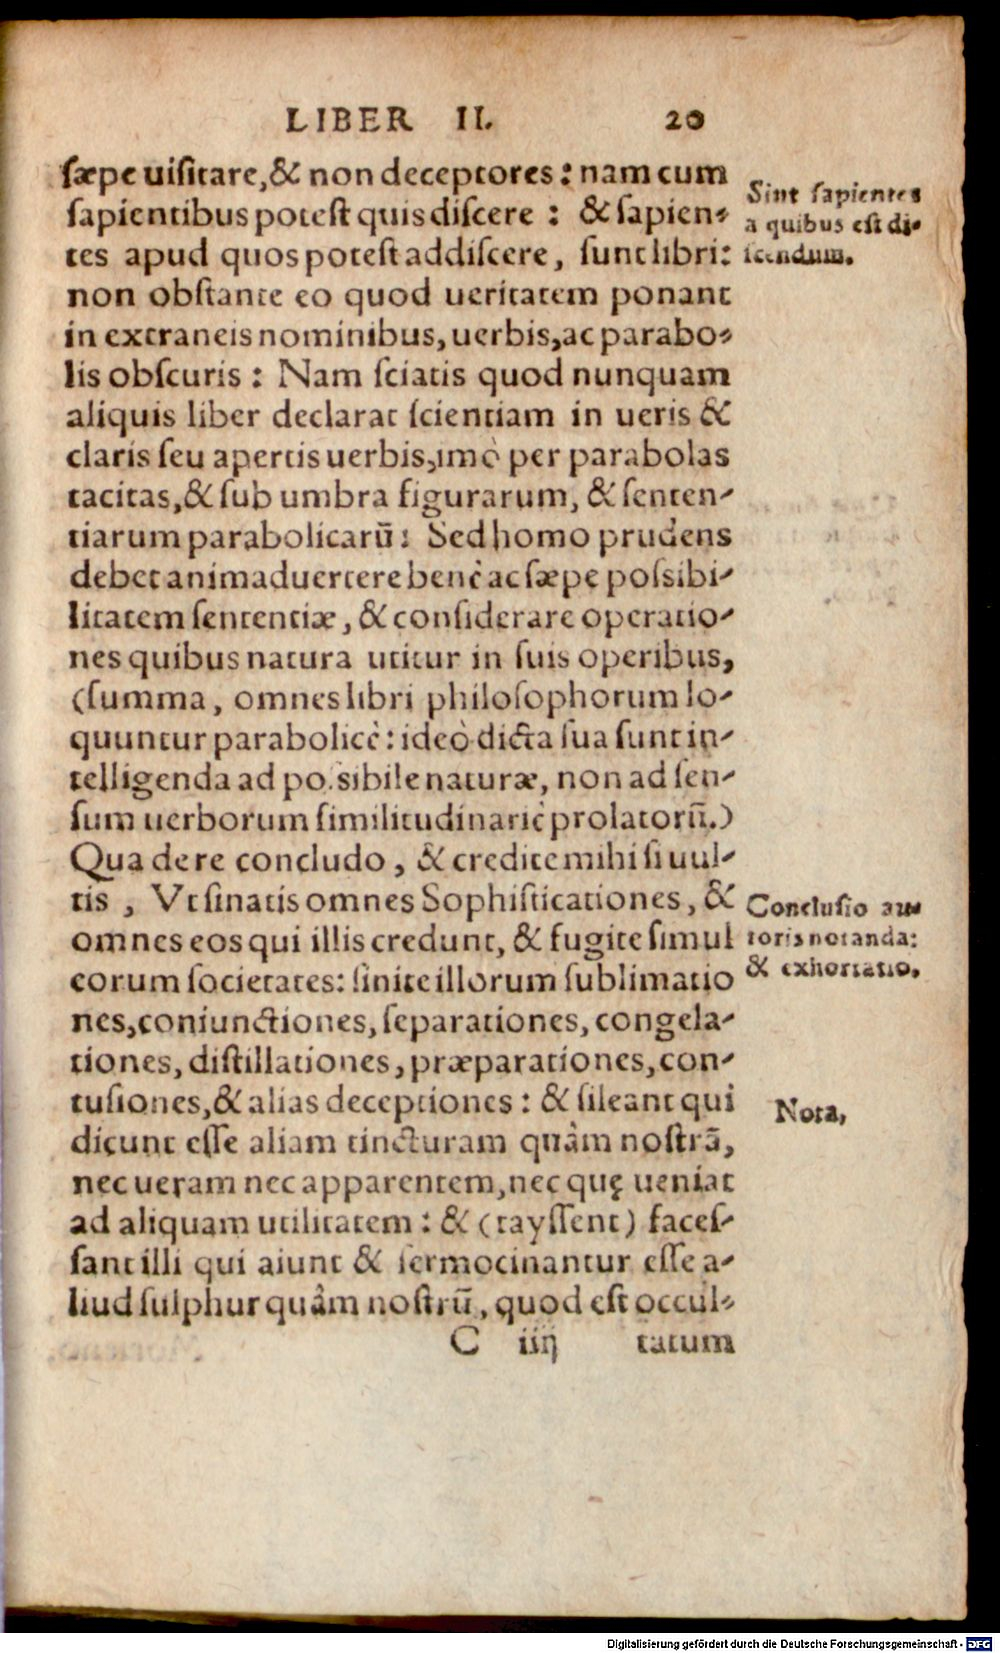 LIBER II. 20
sæpe uisitare,& non deceptores: nam cum
sapientibus potest quis discere: & sapien-
tes apud quos potest addiscere, sunt libri:
non obstante eo quod ueritatem ponant
in extraneis nominibus, uerbis, ac parabo-
lis obscuris: Nam sciatis quod nunquam
aliquis liber declarat scientiam in ueris &
claris seu apertis uerbis, imò per parabolas
tacitas,& sub umbra figurarum, & senten-
tiarum parabolicarũ: Sed homo prudens
debet animaduertere benè ac sæpe possibi-
litatem sententiæ, & considerare operatio-
nes quibus natura utitur in suis operibus,
(summa, omnes libri philosophorum lo-
quuntur parabolicè: ideò dicta sua sunt in-
telligenda ad possibile naturæ, non ad sen-
sum uerborum similitudinariè prolatorũ.)
Qua de re concludo, & credite mihi si uul-
tis, Vt sinatis omnes Sophisticationes, &
omnes eos qui illis credunt, & fugite simul
eorum societates: sinite illorum sublimatio
nes, coniunctiones, separationes, congela-
tiones, distillationes, præparationes, con-
tusiones,& alias deceptiones: & sileant qui
dicunt esse aliam tincturam quàm nostrã,
nec ueram nec apparentem, nec quę ueniat
ad aliquam utilitatem: & (tayssent) faces-
sant illi qui aiunt & sermocinantur esse a-
liud sulphur quàm nostrũ, quod est occul-
C iiij tatum
Sint sapientes
a quibus est di-
scendum.
Conclusio au-
toris notanda:
& exhortatio.
Nota,
Digitalisierung gefördert durch die Deutsche Forschungsgemeinschaft - DFG